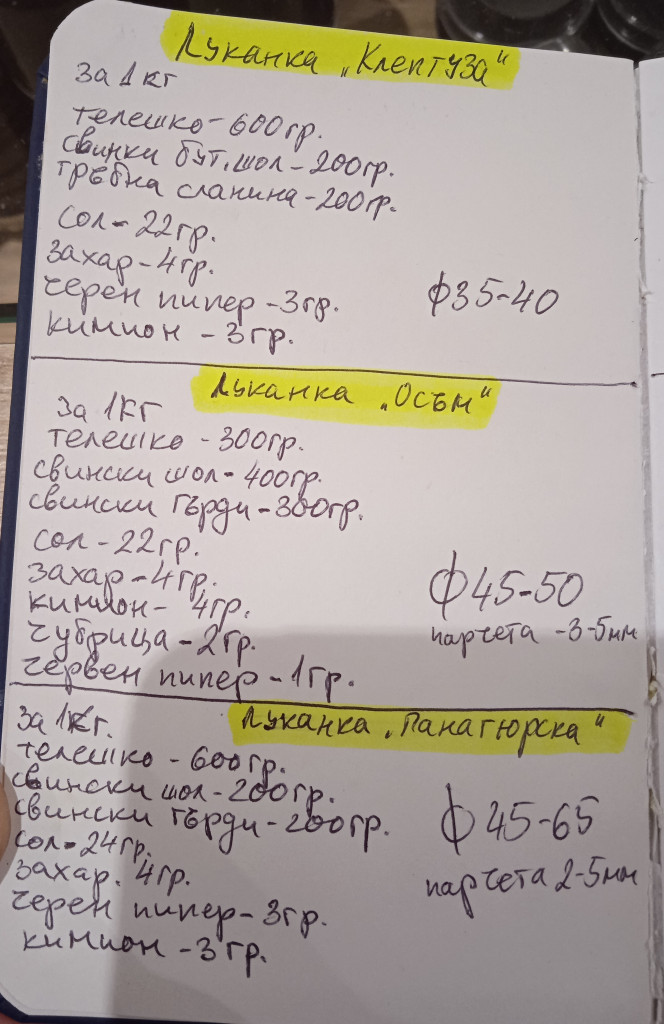 Луканка „Клептуза"
За 1кг
телешко - 600гр.
свинки бут, шол - 200гр.
гръбна сланина - 200гр.
сол - 22гр.
захар - 4гр.
черен пипер - 3гр.
ф35-40
кимион - 3гр.
Луканка „Осъм"
За 1кг
телешко - 300гр.
свински шол - 400гр.
свински гърди - 300гр.
сол - 22гр.
захар - 4гр.
ф45-50
кимион - 4гр.
чубрица - 2гр.
парчета - 3-5мм
червен пипер - 1гр.
Луканка „Панагюрска"
За 1кг.
телешко - 600гр.
свински шол - 200гр.
свински гърди - 200гр.
ф45-65
сол - 24гр.
захар. 4гр.
парчета 2-5мм
черен пипер - 3гр.
кимион - 3гр.